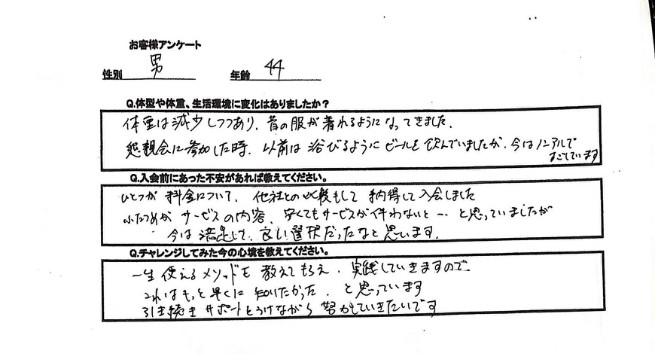 お客様アンケート
性別 男 年齢 44
Q.体型や体重、生活環境に変化はありましたか？
体重は減少しつつあり、昔の服が着れるようになってきました。
懇親会に参加した時、以前は浴びるようにビールを飲んでいましたが、今はノンアルで
すごしています
Q.入会前にあった不安があれば教えてください。
ひとつが料金について、他社との比較もして納得して入会しました
ふたつめがサービスの内容、安くてもサービスが伴わないと…と思っていましたが
今は満足して、良い選択だったなと思います。
Q.チャレンジしてみた今の心境を教えてください。
一生使えるメソッドを教えてもらえ、実践していきますので、
これはもっと早くに知りたかった、と思っています
引き続きサポートをうけながら努力していきたいです